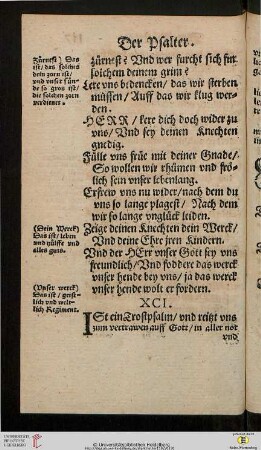 Der Psalter.
Zürnest) Das
ist/ das solches
dein zorn ist/
vnd vnser sün-
de so gros ist/
die solchen zorn
verdienet.
zürnest? Vnd wer furcht sich fur
solchem deinem grim?
Lere vns bedencken/ das wir sterben
müssen/ Auff das wir klug wer-
den.
HERR/ kere dich doch wider zu
vns/ Vnd sey deinen Knechten
gnedig.
Fülle vns früe mit deiner Gnade/
So wollen wir rhümen vnd frö-
lich sein vnser lebenlang.
Erfrew vns nu wider/ nach dem du
vns so lange plagest/ Nach dem
wir so lange vnglück leiden.
(Dein Werck)
Das ist/ leben
vnd hülffe vnd
alles guts.
Zeige deinen Knechten dein Werck/
Vnd deine Ehre jren Kindern.
Vnd der HErr vnser Gott sey vns
freundlich/ Vnd foddere das werck
vnser hende bey vns/ ja das werck
vnser hende wolt er fordern.
(Vnser werck)
Das ist/ geist-
lich vnd welt-
lich Regiment.
XCI.
ISt ein Trostpsalm/ vnd reitzt vns
zum vertrawen auff Gott/ in aller not
vnd
© Universitätsbibliothek Heidelberg